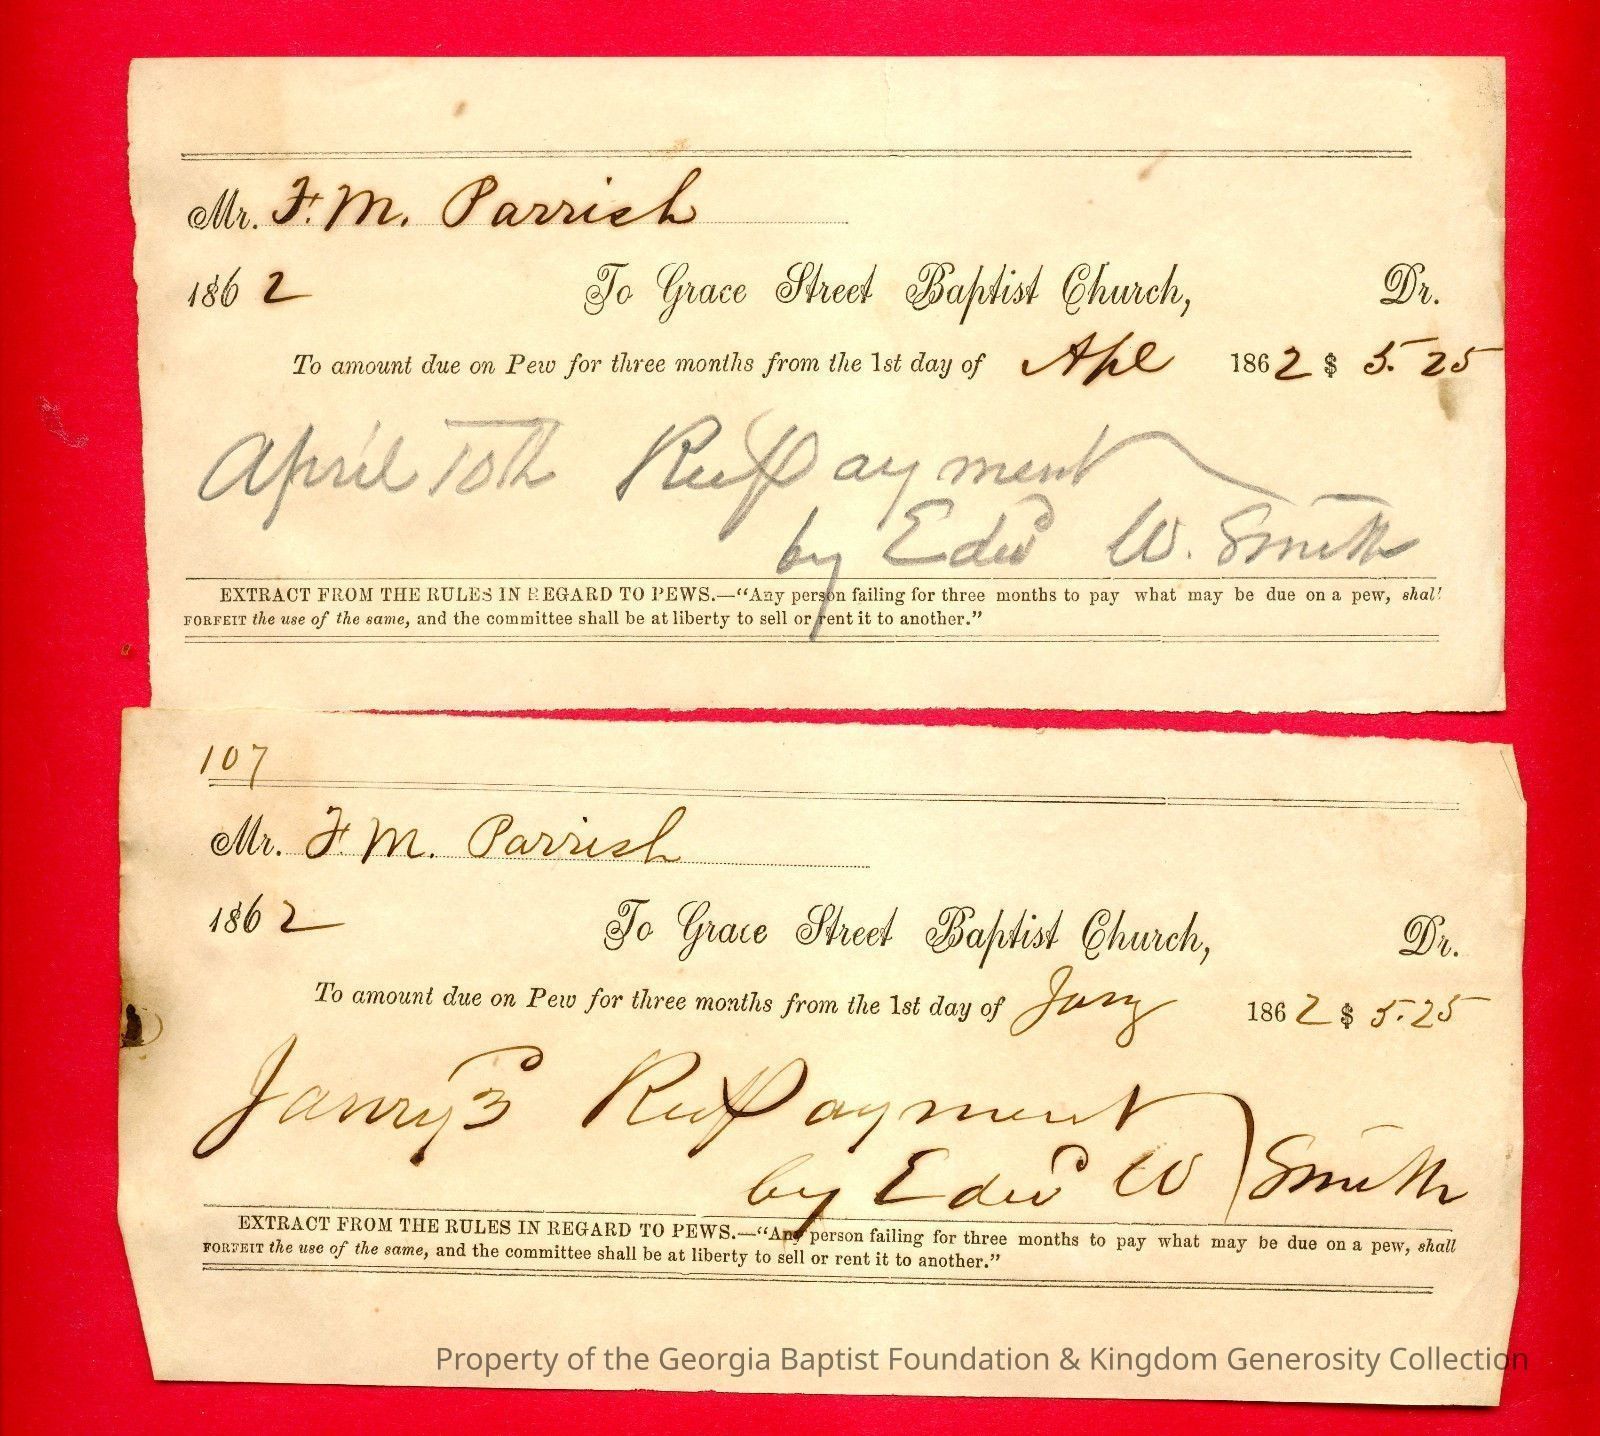 Mr. F. M. Parrish
1862 To Grace Street Baptist Church, Dr.
To amount due on Pew for three months from the 1st day of Apl 1862 $ 5.25
April 10th Recd Payment
by Edwd W. Smith
EXTRACT FROM THE RULES IN REGARD TO PEWS.—“Any person failing for three months to pay what may be due on a pew, shall
FORFEIT the use of the same, and the committee shall be at liberty to sell or rent it to another.”
107
Mr. F. M. Parrish
1862 To Grace Street Baptist Church, Dr.
To amount due on Pew for three months from the 1st day of Jany 1862 $ 5.25
Janry 3 Recd Payment
by Edwd W Smith
EXTRACT FROM THE RULES IN REGARD TO PEWS.—“Any person failing for three months to pay what may be due on a pew, shall
FORFEIT the use of the same, and the committee shall be at liberty to sell or rent it to another.”
Property of the Georgia Baptist Foundation & Kingdom Generosity Collection